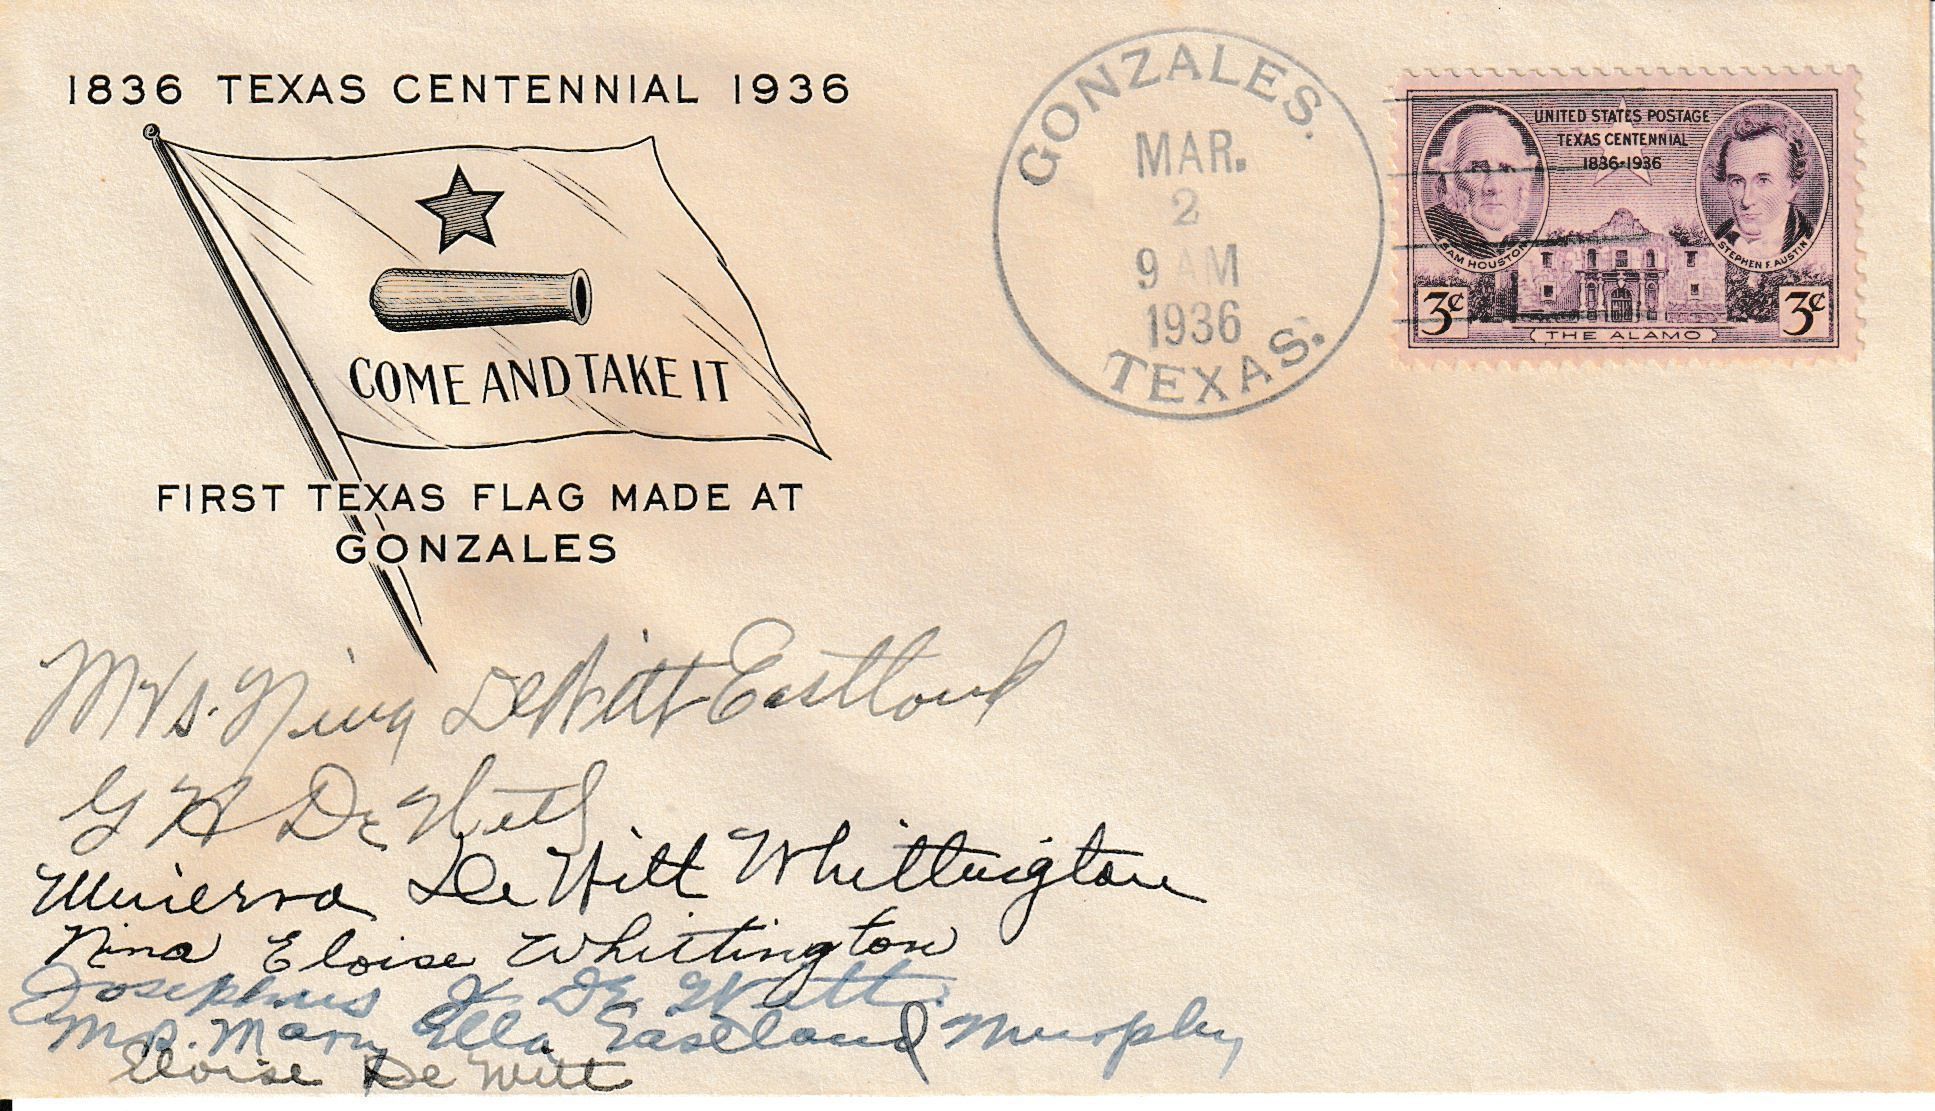 1836 TEXAS CENTENNIAL 1936
COME AND TAKE IT
FIRST TEXAS FLAG MADE AT
GONZALES
GONZALES.
MAR.
2
9 AM
1936
TEXAS.
UNITED STATES POSTAGE
TEXAS CENTENNIAL
1836-1936
SAM HOUSTON
STEPHEN F. AUSTIN
3¢
THE ALAMO
3¢
Mrs. Nina DeWitt Eastland
G H De Witt
Minerva De Witt Whittington
Nina Eloise Whittington
Josephus De Witt
Mrs. Mary Ella Eastland Murphy
Eloise De Witt